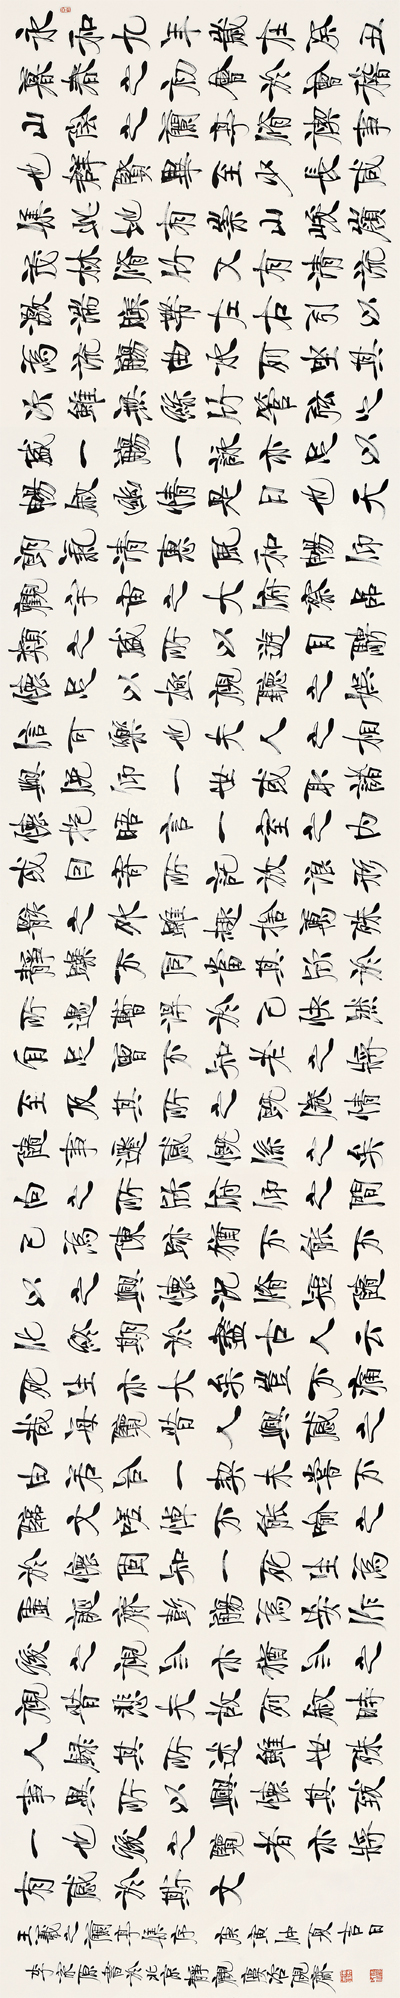 永和九年歲在癸丑
暮春之初會於會稽
山陰之蘭亭脩禊事
也群賢畢至少長咸
集此地有崇山峻嶺
茂林脩竹又有清流
激湍映帶左右引以
為流觴曲水列坐其
次雖無絲竹管弦之
盛一觴一詠亦足以
暢敘幽情是日也天
朗氣清惠風和暢仰
觀宇宙之大俯察品
類之盛所以遊目騁
懷足以極視聽之娛
信可樂也夫人之相
與俯仰一世或取諸
懷抱晤言一室之內
或因寄所託放浪形
骸之外雖趣捨萬殊
靜躁不同當其欣於
所遇暫得於己快然
自足曾不知老之將
至及其所之既倦情
隨事遷感慨係之矣
向之所欣俯仰之間
已為陳跡猶不能不
以之興懷況脩短隨
化終期於盡古人云
死生亦大矣豈不痛
哉每覽昔人興感之
由若合一契未嘗不
臨文嗟悼不能喻之
於懷固知一死生為
虛誕齊彭殤為妄作
後之視今亦猶今之
視昔悲夫故列敘時
人錄其所述雖世殊
事異所以興懷其致
一也後之覽者亦將
有感於斯文
王羲之蘭亭集序 庚寅仲夏吉日
李家原書於北京靜觀